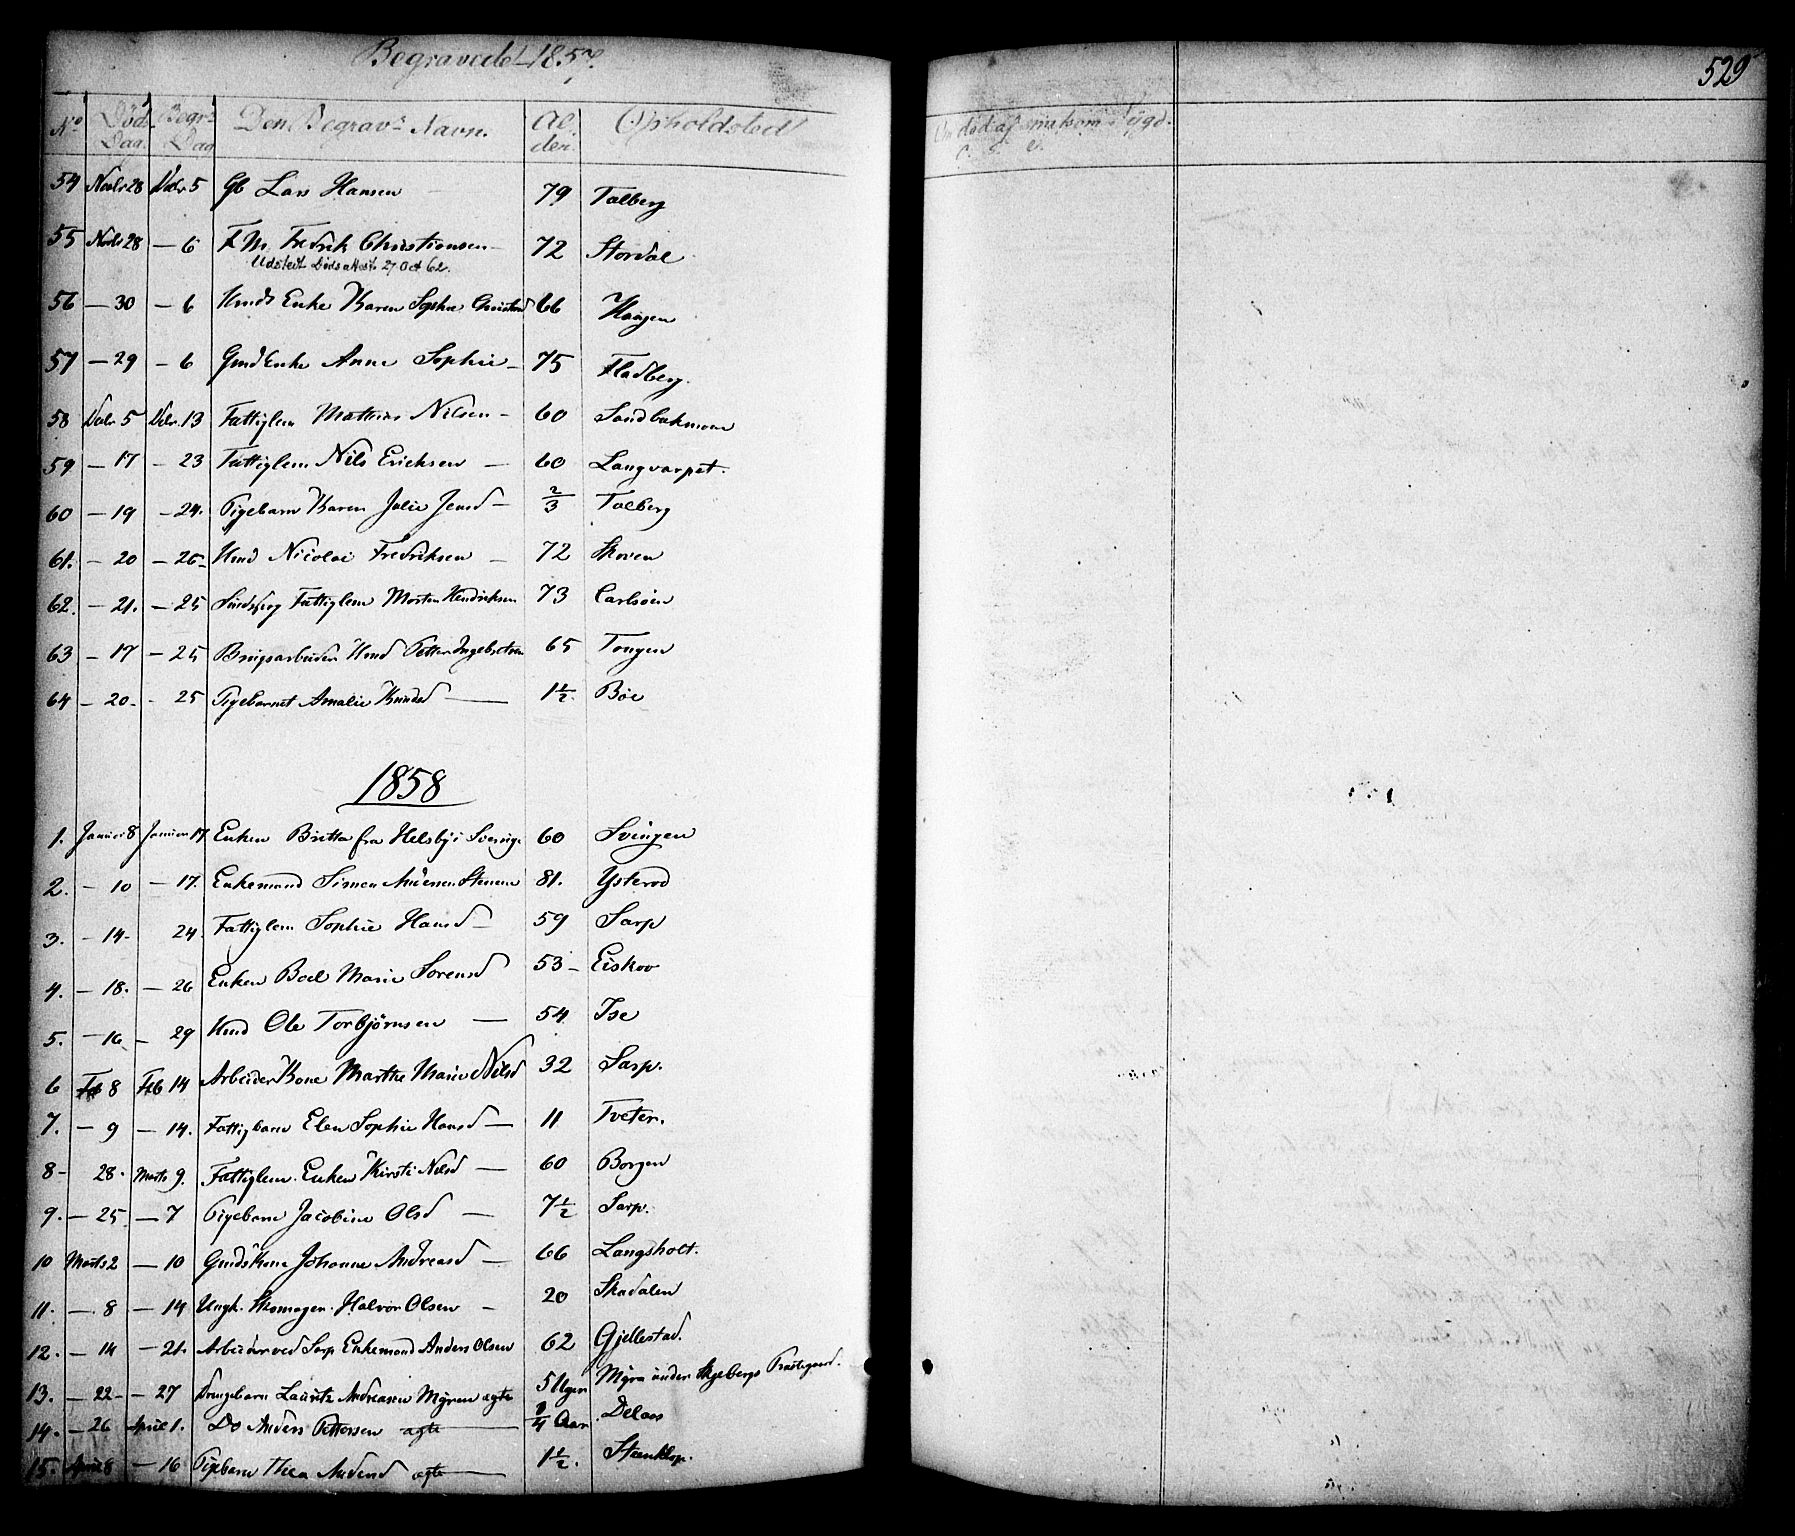 Begravede 1857.
529
No Døds Dag. Begr. Dag Den Begravs Navn. Alder. Opholdsted
Om død af smitsom Syge.
54 Novbr 28 Decbr 5 Gb Lars Hansen 79 Talberg
55 Novbr 28 — 6 F. M. Fredrik Christiansen 72 Stordal
Udstedt Dødsattest 27 Oct 62.
56 — 30 — 6 Huuds Enke Karen Sophie Christensd 66 Haugen
57 — 29 — 6 Gmd Enke Anne Sophie — 75 Fladberg.
58 Decbr 5 Decbr. 13 Fattiglem Mathias Nilsen — 60 Sandbakmoen
59 — 17 — 23 Fattiglem Nils Ericksen — 60 Langvarpet.
60 — 19 — 24. Pigebarn Karen Julie Jensd — 2/3 Talberg
61. — 20 — 26 — Hmd Nicolai Fredriksen — 72 Skoven
62. — 21. — 25 Fattiglem Morten Hendriksen 73 Carlsöen
63 — 17 — 25 Brugsarbeider Hmd Petter Ingebretsen 65 Tongen
64 — 20 — - 25 Pigebarnet Amalie Knudsd — 1 1/2 Böe
1858
1. Januar 8 Januar 17 Enken Britta fra Helsby i Sverige 60 Svingen
2. — 10 — 17. Enkemand Simen Andersen 81. Ysterød
3. — 14 — 24. Fattiglem Sophie Hansd — 59 Sarp
4. — 18. — 26 Enken Boel Marie Sorensd 53 — Eiskov
5. — 16 — 29 Hmd Ole Torbjörnsen — 54 Ise
6 Feb 8 Feb 14 Arbeider Kone Marthe Marie Nilsd 32 Sarp.
7. — 9 — 14. Fattigbarn Elen Sophie Hansd — 11 Tveter.
8 — 28. Marts 9. Fattiglem. Enken Kirsti Nilsd — 60 Borgen
9. — 25. — 7 Pigebarn Jacobine Olsd — 7 1/2 Sarp.
10 Marts 2 — 10 Gmds Kone Johanne Andreasd — 66 Langsholt.
11. — 8 — 14 Ungk. Skomager. Halvor Olsen — 20 Skadalen
12. — 14 — 21. Arbeider ved Sarp Enkemand Anders Olsen 62 Gjellestad.
13. — 22 — — 27 Drengebarn Lauritz Andreasen Myren ægte 5 Uger Myra under Skjebergs Præstegaard.
14. — 26 April 1. Do Anders Pettersen ægte 3/4 Aar. Delaas
15. April 8 — 16 Pigebarn Thea Andersd ægte 1 1/2. Steenklep.